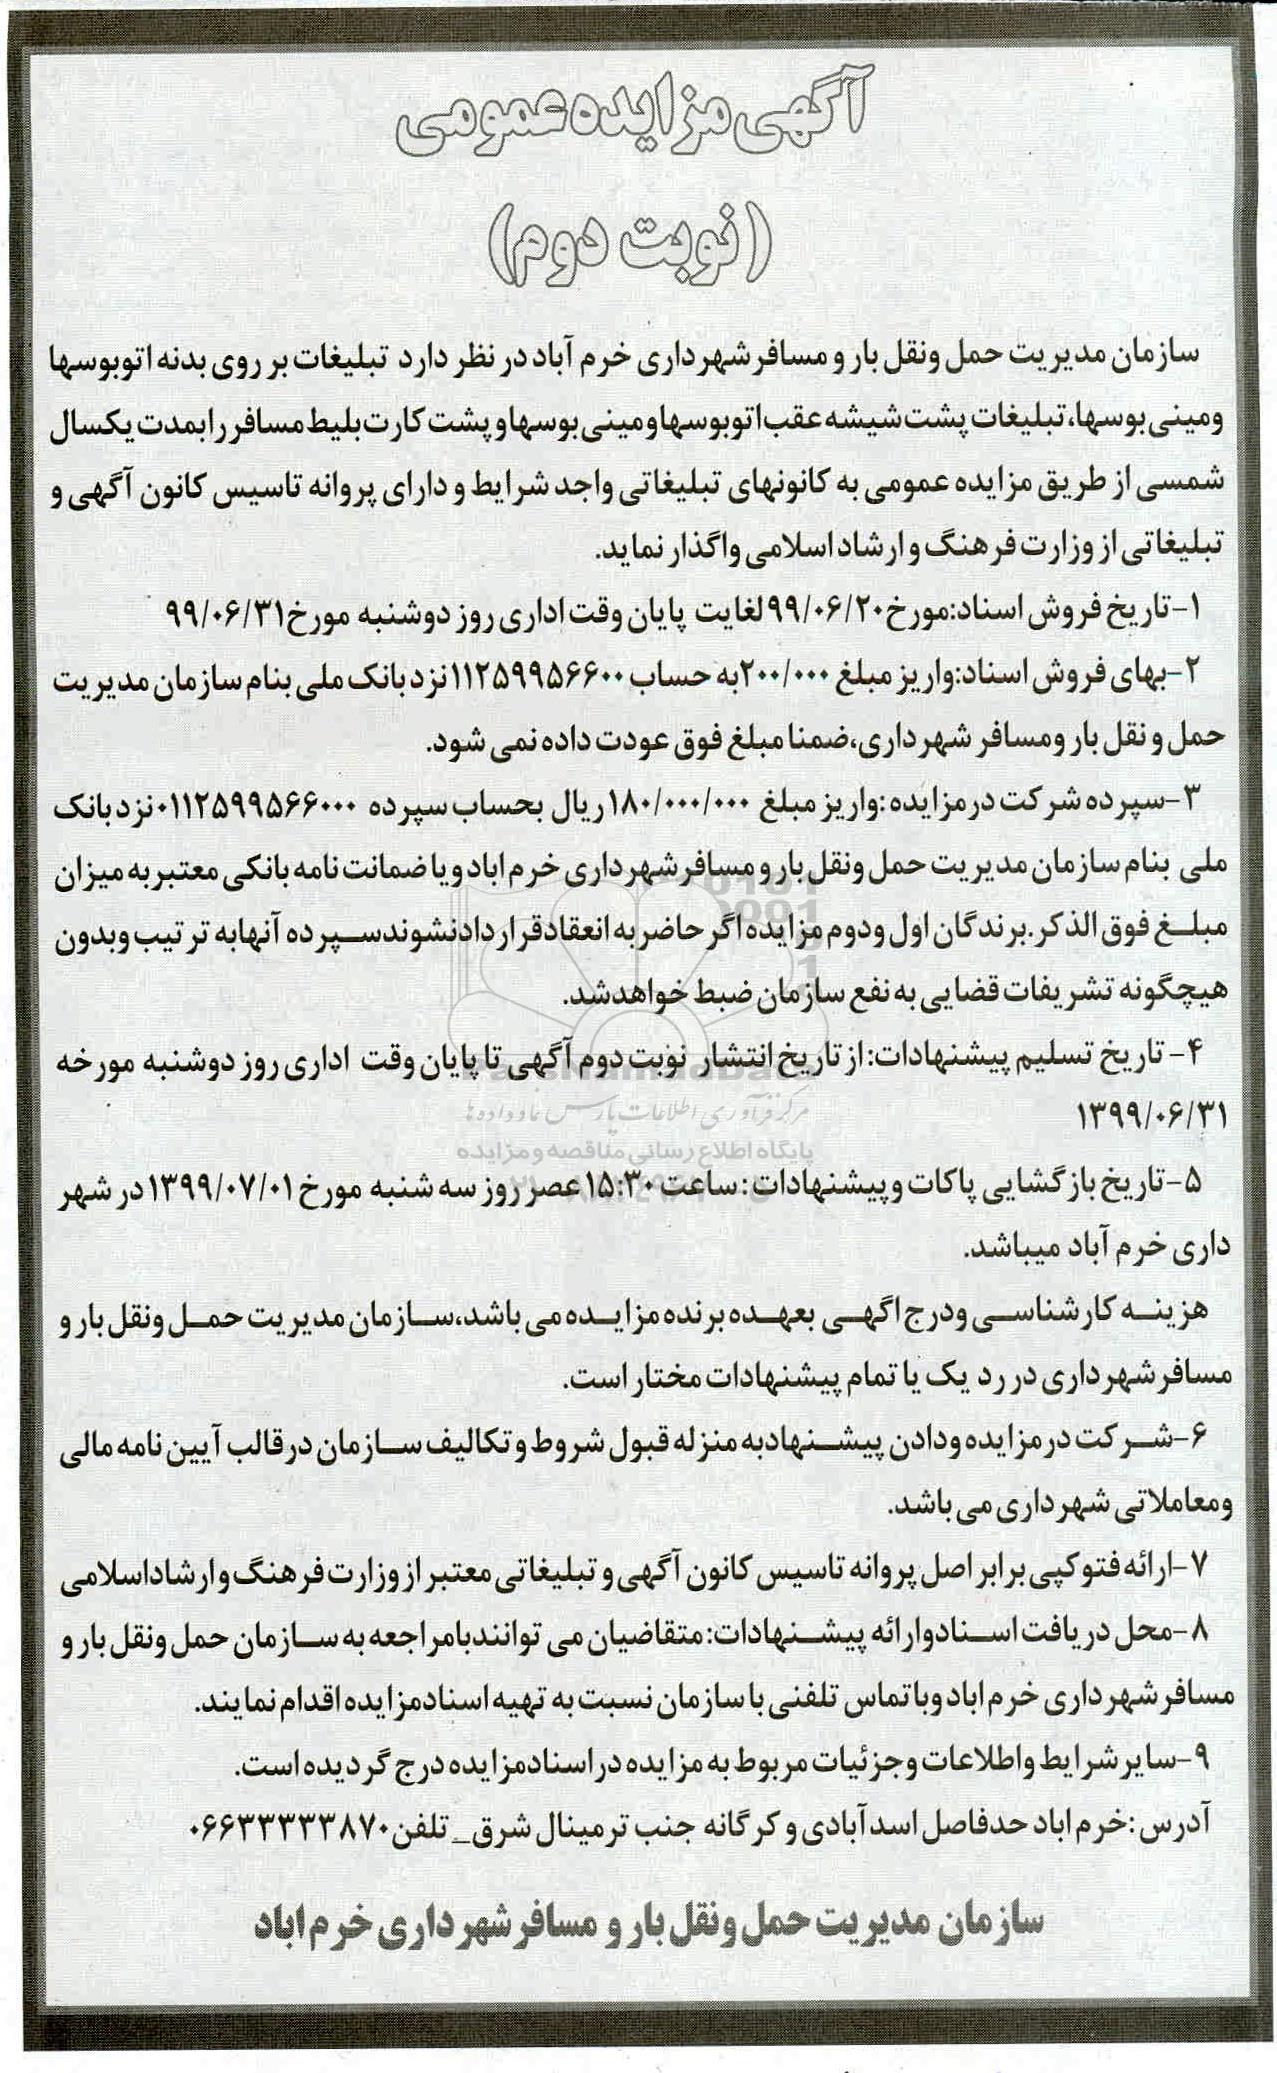 آگهی مزایده عمومی
(نوبت دوم)
سازمان مدیریت حمل ونقل بار و مسافر شهرداری خرم آباد در نظر دارد تبلیغات بر روی بدنه اتوبوسها
ومینی بوسها، تبلیغات پشت شیشه عقب اتوبوسها ومینی بوسها و پشت کارت بلیط مسافر را بمدت یکسال
شمسی از طریق مزایده عمومی به کانونهای تبلیغاتی واجد شرایط و دارای پروانه تاسیس کانون آگهی و
تبلیغاتی از وزارت فرهنگ و ارشاد اسلامی واگذار نماید.
۱-تاریخ فروش اسناد:مورخ ۹۹/۰۶/۲۰ لغایت پایان وقت اداری روز دوشنبه مورخ ۹۹/۰۶/۳۱
۲-بهای فروش اسناد:واریز مبلغ ۲۰۰/۰۰۰ به حساب ۱۱۲۵۹۹۵۶۶۰۰ نزد بانک ملی بنام سازمان مدیریت
حمل و نقل بار ومسافر شهرداری،ضمنا مبلغ فوق عودت داده نمی شود.
۳-سپرده شرکت درمزایده:واریز مبلغ ۱۸۰/۰۰۰/۰۰۰ ریال بحساب سپرده ۰۱۱۲۵۹۹۵۶۶۰۰۰ نزد بانک
ملی بنام سازمان مدیریت حمل ونقل بار و مسافر شهرداری خرم اباد و یا ضمانت نامه بانکی معتبر به میزان
مبلغ فوق الذکر. برندگان اول ودوم مزایده اگر حاضر به انعقاد قرار داد نشوند سپرده آنها به ترتیب وبدون
هیچگونه تشریفات قضایی به نفع سازمان ضبط خواهد شد.
۴- تاریخ تسلیم پیشنهادات: از تاریخ انتشار نوبت دوم آگهی تا پایان وقت اداری روز دوشنبه مورخه
۱۳۹۹/۰۶/۳۱
مرکز فرآوری اطلاعات پارس نماد داده ها
پایگاه اطلاع رسانی مناقصه و مزایده
۵-تاریخ بازگشایی پاکات و پیشنهادات: ساعت ۱۵:۳۰ عصر روز سه شنبه مورخ ۱۳۹۹/۰۷/۰۱ در شهر
داری خرم آباد میباشد.
هزینه کارشناسی ودرج اگهی بعهده برنده مزایده می باشد،سازمان مدیریت حمل ونقل بار و
مسافر شهرداری در رد یک یا تمام پیشنهادات مختار است.
۶-شرکت در مزایده ودادن پیشنهاد به منزله قبول شروط و تکالیف سازمان در قالب آیین نامه مالی
ومعاملاتی شهرداری می باشد.
۷-ارائه فتوکپی برابر اصل پروانه تاسیس کانون آگهی و تبلیغاتی معتبر از وزارت فرهنگ و ارشاد اسلامی
۸-محل دریافت اسناد وارائه پیشنهادات: متقاضیان می توانند با مراجعه به سازمان حمل ونقل بار و
مسافر شهرداری خرم اباد وبا تماس تلفنی با سازمان نسبت به تهیه اسناد مزایده اقدام نمایند.
۹-سایر شرایط واطلاعات وجزئیات مربوط به مزایده در اسناد مزایده درج گردیده است.
آدرس :خرم اباد حدفاصل اسد آبادی و کرگانه جنب ترمینال شرق_ تلفن ۰۶۶۳۳۳۳۳۸۷۰
سازمان مدیریت حمل ونقل بار و مسافر شهرداری خرم اباد